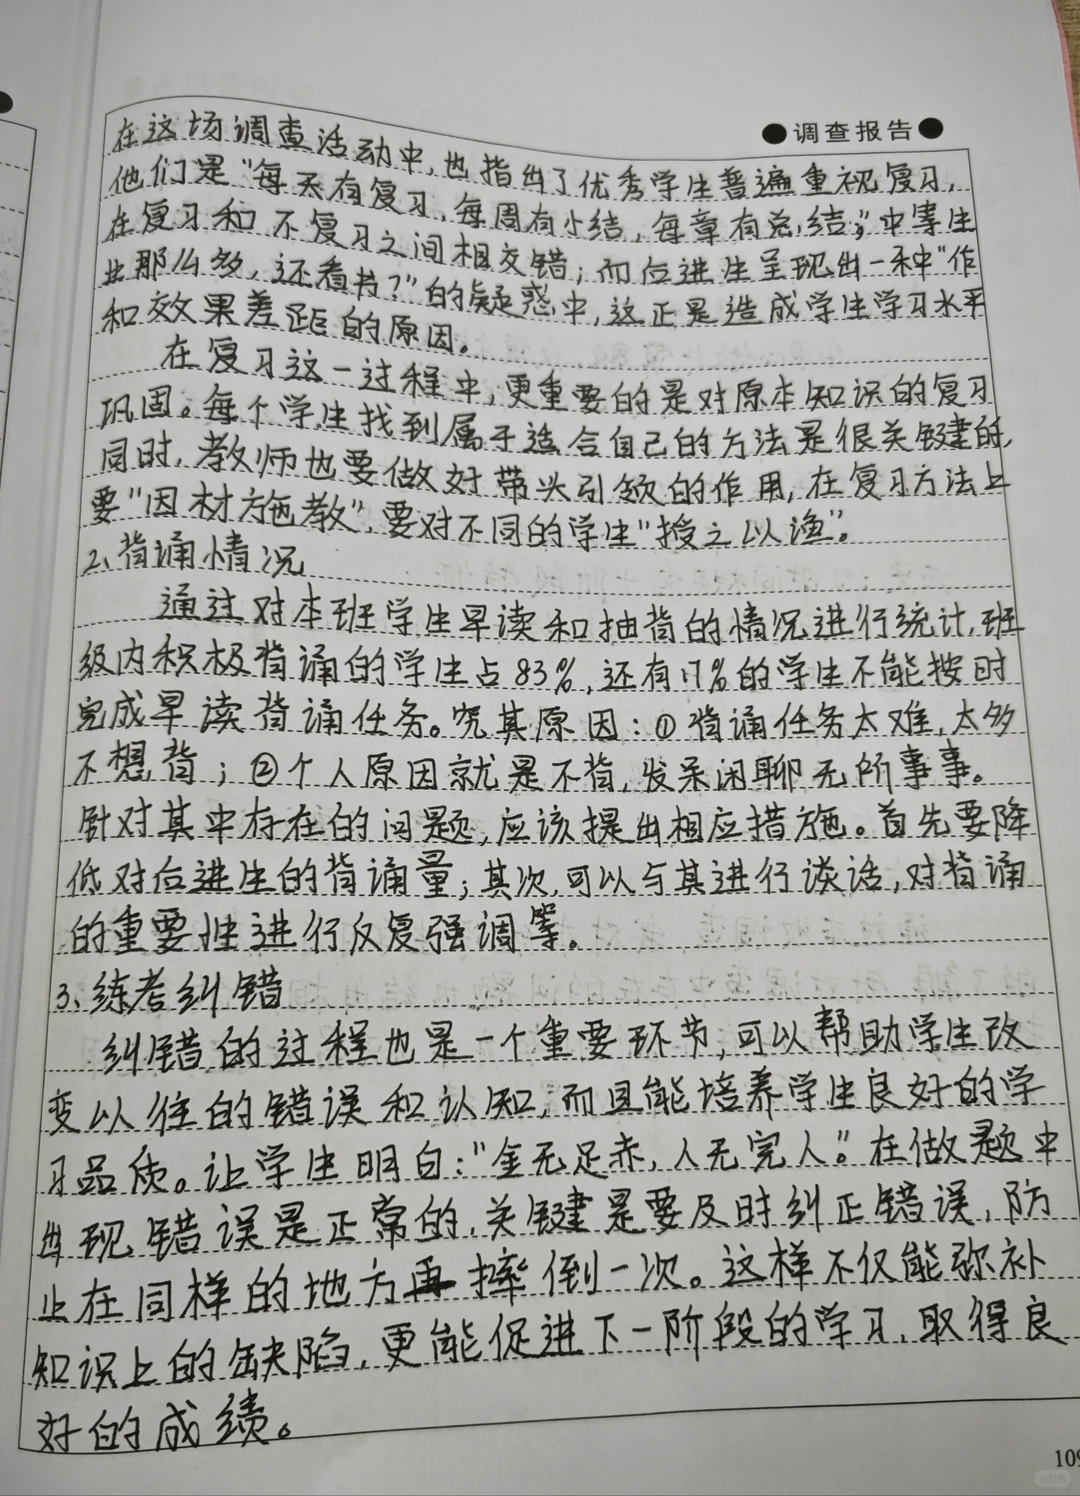 ●调查报告●
在这场调查活动中,也指出了优秀学生普遍重视复习,
他们是“每天有复习,每周有小结,每章有总结;”中等生
在复习和不复习之间相交错;而后进生呈现出一种“作
业那么多,还看书?”的疑惑中,这正是造成学生学习水平
和效果差距的原因。
在复习这一过程中,更重要的是对原本知识的复习
巩固。每个学生找到属于适合自己的方法是很关键的,
同时,教师也要做好带头引领的作用,在复习方法上
要“因材施教”,要对不同的学生“授之以渔”。
2、背诵情况
通过对本班学生早读和抽背的情况进行统计,班
级内积极背诵的学生占83%,还有17%的学生不能按时
完成早读背诵任务。究其原因:①背诵任务太难,太多
不想背;②个人原因就是不背,发呆闲聊无所事事。
针对其中存在的问题,应该提出相应措施。首先要降
低对后进生的背诵量;其次,可以与其进行谈话,对背诵
的重要性进行反复强调等。
3、练考纠错
纠错的过程也是一个重要环节,可以帮助学生改
变以往的错误和认知,而且能培养学生良好的学
习品质。让学生明白:“金无足赤,人无完人”。在做题中
出现错误是正常的,关键是要及时纠正错误,防
止在同样的地方再摔倒一次。这样不仅能弥补
知识上的缺陷,更能促进下一阶段的学习,取得良
好的成绩。
109
小红书